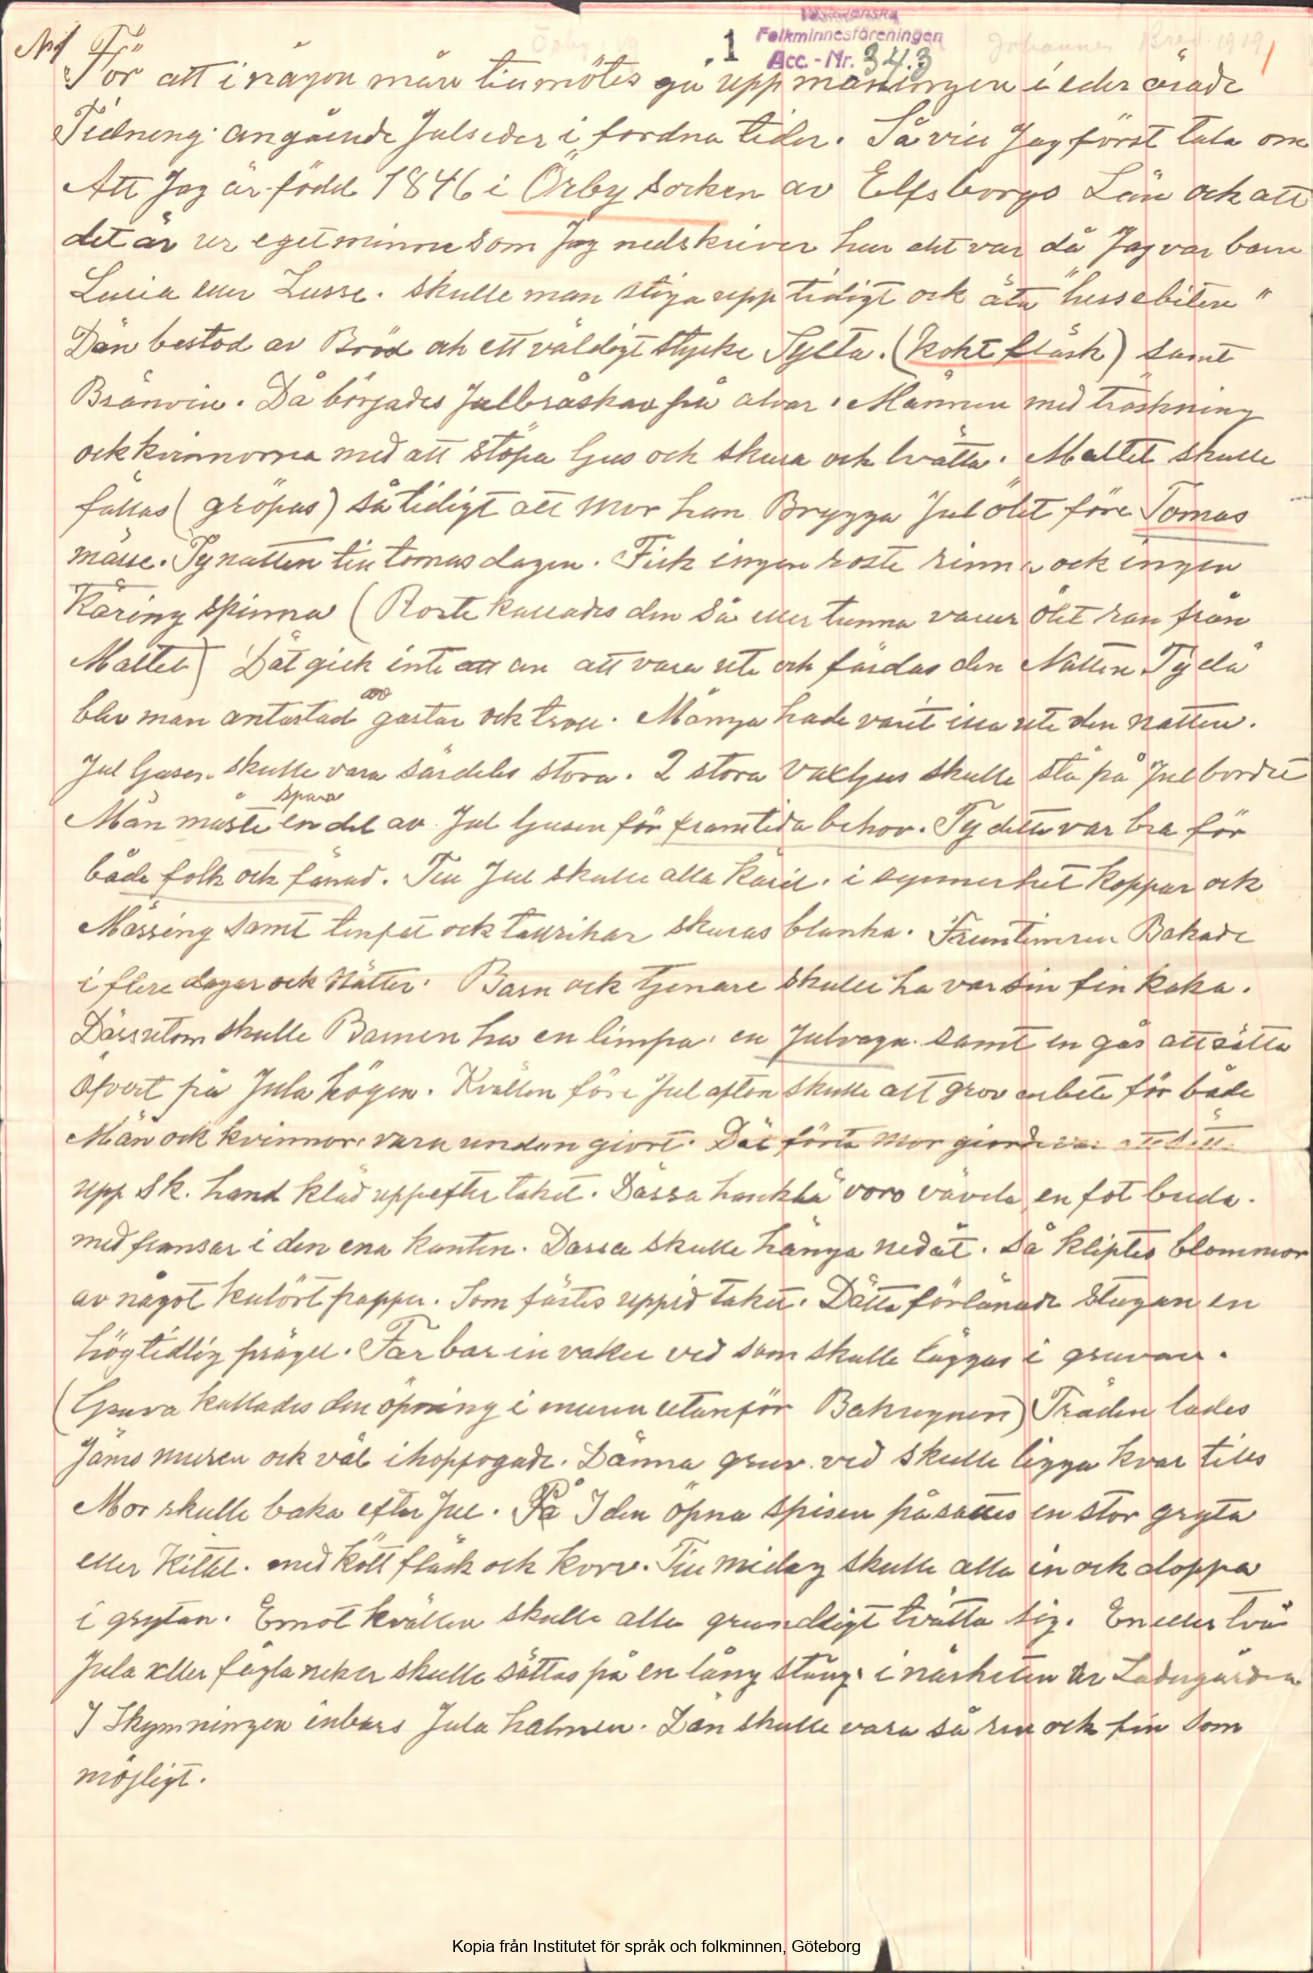 No 1
1
Folkminnesföreningen
Acc.-Nr. 343
För att i någon mån tillmötes gå uppmaningen i eder ärade
Tidning angående Julseder i fordna tider. Så vill Jag först tala om
Att Jag är född 1846 i Örby Socken av Elfsborgs Län ock att
det är ur eget minne som Jag nedskriver hur det var då Jag var barn
Lucia eller Lusse. skulle man stiga upp tidigt ock äta "lussebiten"
Dän bestod av Bröd och ett väldigt stycke Sylta. (kokt fläsk) samt
Bränvin. Då börjades Julbråskan på alvar. Männen med tröskning
ock kvinnorna med att stöpa ljus och skura och tvätta. Maltet skulle
fällas (gröpas) så tidigt att Mor han Brygga Jul ölet före Tomas
mässe. Ty natten till tomasdagen. Fick ingen roste rinna ock ingen
Käring spinna (Roste kallades den så eller tunna varur ölet ran från
Maltet) Dät gick inte an att vara ute och färdas den Natten Ty då
blev man antastad av gastar ock troll. Många hade varit illa ute den natten.
Jul ljusen skulle vara särdeles stora. 2 stora Vaxljus skulle stå på Julbordet
Män måste spara en del av Jul ljusen för framtida behov. Ty detta var bra för
både folk och fänad. Till Jul skulle alla käril. i synnerhet koppar ock
Mässing samt tenfat ock talrikar skuras blanka. Fruntimren Bakade
i flere dagar ock Nätter. Barn ock tjenare skulle ha var sin fin kaka.
Dässutom skulle Barnen ha en limpa. en julvagn. samt en gås att sätta
öfverst på Jula högen. Kvällen före Jul afton skulle alt grov arbete för både
Män ock kvinnor. vara undan gjort. Dät första Mor gjorde var att sätta
upp sk. hand kläd uppefter taket. Dässa hanklä voro vävda en fot breda.
med fransar i den ena kanten. Dässa skulle hänga nedåt. Så kliptes blommor
av något kulört papper. Som fästes uppid taket. Dätta förlänade stugan en
högtidlig prägel. Far bar in vaker ved som skulle läggas i gruvan.
(Gruva kallades den öpning i muren utanför Bakugnen) Träden lades
Jäms muren ock väl ihopfogade. Dänna gruv ved skulle ligga kvar tills
Mor skulle baka efter Jul. På I den öpna spisen påsattes en stor gryta
eller Kittel. med kött fläsk och korv. Till midag skulle alla in ock doppa
i grytan. Emot kvällen skulle alla grundligt tvätta sig. En eller två
Jula eller fågla neker skulle sättas på en lång stång i närheten av Ladugården
I Skymningen inbars Jula halmen. Dän skulle vara så ren ock fin som
möjligt.
Kopia från Institutet för språk och folkminnen, Göteborg